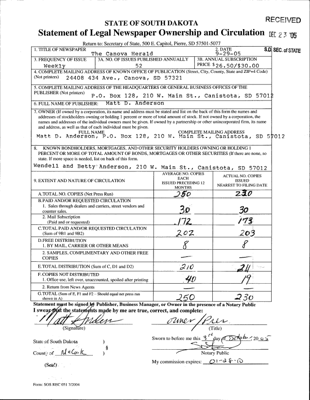 RECEIVED
DEC 27 '05
S.D. SEC. of STATE
STATE OF SOUTH DAKOTA
Statement of Legal Newspaper Ownership and Circulation
Return to: Secretary of State, 500 E. Capitol, Pierre, SD 57501-5077
1. TITLE OF NEWSPAPER
The Canova Herald
2. DATE
9-29-05
3. FREQUENCY OF ISSUE
Weekly
3A. NO. OF ISSUES PUBLISHED ANNUALLY
52
3B. ANNUAL SUBSCRIPTION
PRICE $26.50/$30.00
4. COMPLETE MAILING ADDRESS OF KNOWN OFFICE OF PUBLICATION (Street, City, County, State and ZIP+4 Code)
(Not printers)
26408 434 Ave., Canova, SD 57321
5. COMPLETE MAILING ADDRESS OF THE HEADQUARTERS OR GENERAL BUSINESS OFFICES OF THE
PUBLISHER (Not printers)
P.O. Box 128, 210 W. Main St., Canistota, SD 57012
6. FULL NAME OF PUBLISHER:
Matt D. Anderson
7. OWNER (If owned by a corporation, its name and address must be stated and list on the back of this form the names and
addresses of stockholders owning or holding 1 percent or more of total amount of stock. If not owned by a corporation, the
names and addresses of the individual owners must be given. If owned by a partnership or other unincorporated firm, its name
and address, as well as that of each individual must be given.
FULL NAME
COMPLETE MAILING ADDRESS
Matt D. Anderson, P.O. Box 128, 210 W. Main St., Canistota, SD 57012
8. KNOWN BONDHOLDERS, MORTGAGES, AND OTHER SECURITY HOLDERS OWNING OR HOLDING 1
PERCENT OR MORE OF TOTAL AMOUNT OF BONDS, MORTGAGES OR OTHER SECURITIES (If there are none, so
state. If more space is needed, list on back of this form.
Wendell and Betty Anderson, 210 W. Main St., Canistota, SD 57012
9. EXTENT AND NATURE OF CIRCULATION
AVERAGE NO. COPIES
EACH
ISSUED PRECEDING 12
MONTHS
ACTUAL NO. COPIES
ISSUED
NEAREST TO FILING DATE
A. TOTAL NO. COPIES (Net Press Run)
250
230
B. PAID AND/OR REQUESTED CIRCULATION
1. Sales through dealers and carriers, street vendors and
counter sales.
30
30
2. Mail Subscription
(Paid and or requested)
172
173
C. TOTAL PAID AND/OR REQUESTED CIRCULATION
(Sum of 9B1 and 9B2)
202
203
D. FREE DISTRIBUTION
1. BY MAIL, CARRIER OR OTHER MEANS
8
8
2. SAMPLES, COMPLIMENTARY AND OTHER FREE
COPIES
E. TOTAL DISTRIBUTION (Sum of C, D1 and D2)
210
211
F. COPIES NOT DISTRIBUTED
1. Office use, left over, unaccounted, spoiled after printing
40
19
2. Return from News Agents
G. TOTAL (Sum of E, F1 and F2 - Should equal net press run
shown in A)
250
230
Statement must be signed by Publisher, Business Manager, or Owner in the presence of a Notary Public
I swear that the statements made by me are true, correct, and complete:
Matt Anderson
(Signature)
(Title)
State of South Dakota )
County of
Sworn to before me this
Notary Public
My commission expires:
(Seal)